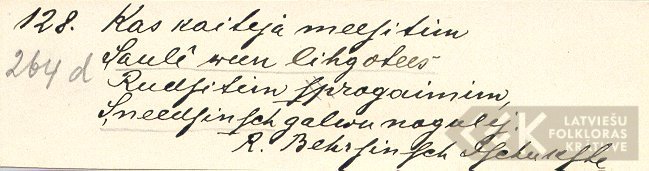 128. Kas kaiteja meesitim
264 d Saulê ween lihgotees
Rudsitim sprogainim,
Sneedsinsch galwu noguleja
R. Behrsinsch
LATVIEŠU
FOLKLORAS
KRĀTUVE